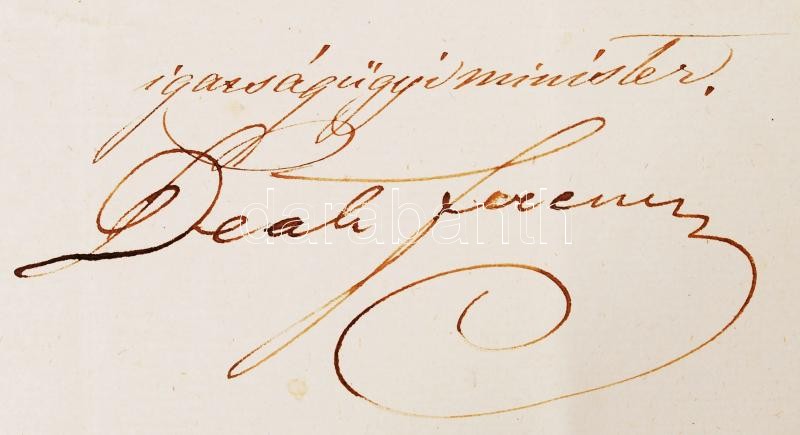 igazságügyi minister.
Deák Ferencz
darabanth